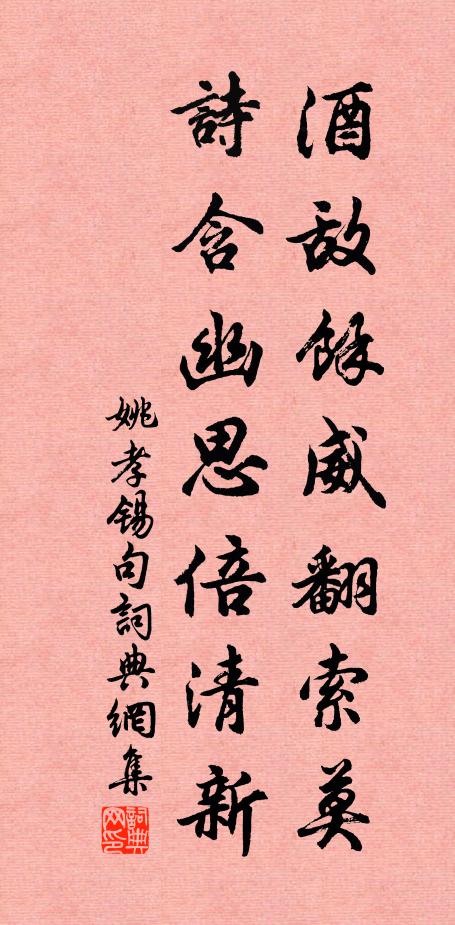 酒敌餘威翻索莫
詩含幽思倍清新
姚孝锡句詞典網集
詞典网印